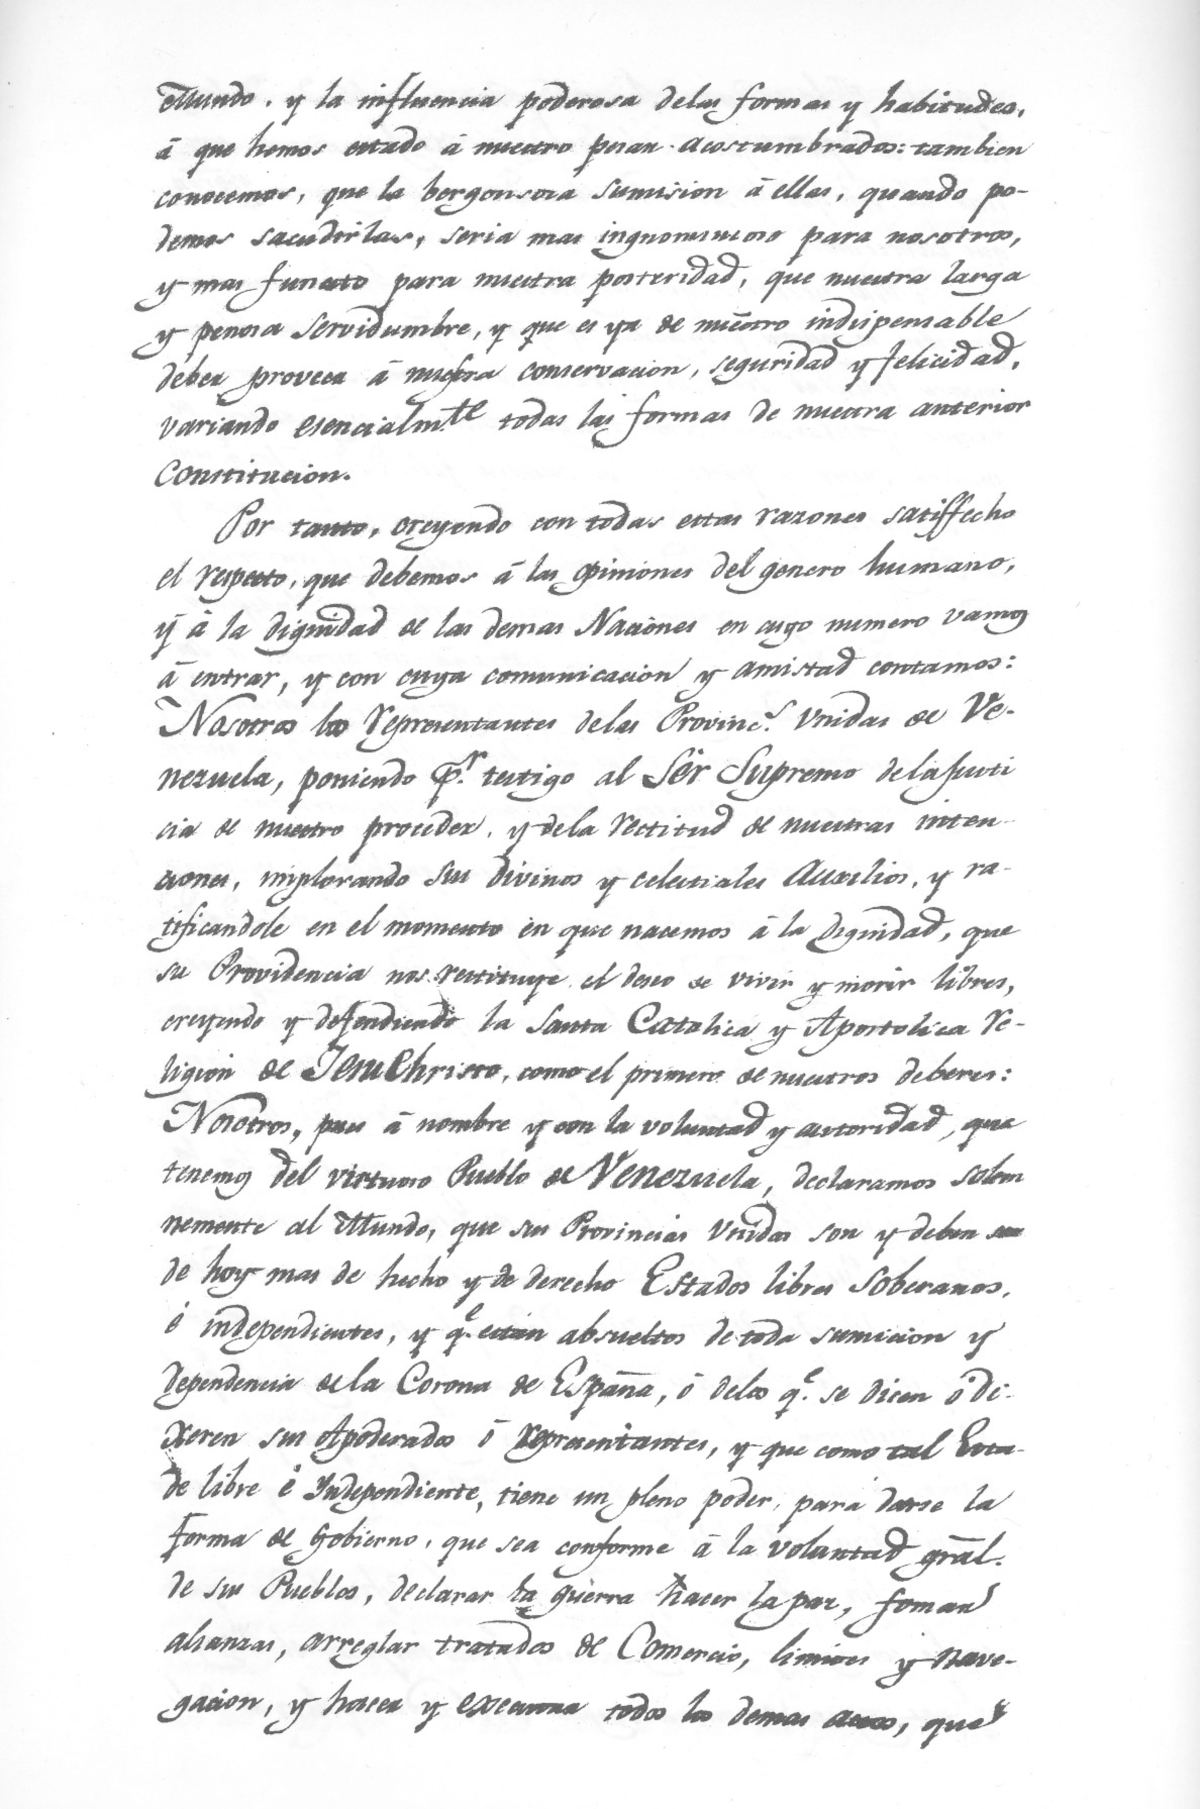 Mundo, y la influencia poderosa delas formas y habitudes,
á que hemos estado á nuestro pesar acostumbrados: tambien
conocemos, que la bergonsosa sumision á ellas, quando po-
demos sacudirlas, seria mas ingnominioso para nosotros,
y mas funesto para nuestra posteridad, que nuestra larga
y penosa servidumbre, y que es ya de nuestro indispensable
deber proveer á nuestra conservacion, seguridad y felicidad,
variando esencialm.te todas las formas de nuestra anterior
Constitucion.
Por tanto, creyendo con todas estas razones satisfecho
el respeto, que debemos á las opiniones del genero humano,
y á la dignidad de las demas Naciones en cuyo numero vamos
á entrar, y con cuya comunicacion y amistad contamos:
Nosotros los representantes delas Provinc.s Unidas de Ve-
nezuela, poniendo p.r testigo al Sér Supremo dela justi
cia de nuestro proceder, y dela rectitud de nuestras inten-
ciones, implorando sus divinos y celestiales Auxilios, y ra-
tificandole en el momento en que nacemos á la dignidad, que
su Providencia nos restituye el deseo de vivir y morir libres,
creyendo y defendiendo la Santa Catolica y Apostolica Re-
ligion de JesuChristo, como el primero de nuestros deberes:
Nosotros, pues á nombre y con la voluntad y autoridad, que
tenemos del virtuoso Pueblo de Venezuela, declaramos solem
nemente al Mundo, que sus Provincias Unidas son y deben ser
de hoy mas de hecho y de derecho Estados libres soberanos,
é independientes, y q.e están absueltos de toda sumicion y
dependencia de la Corona de España, ó delos q.e se dicen ó di-
xeren sus Apoderados ó representantes, y que como tal Esta-
do libre é Independiente, tiene un pleno poder, para darse la
forma de Gobierno, que sea conforme á la voluntad gral.
de sus Pueblos, declarar la guerra hacer la paz, fomar
alianzas, arreglar tratados de Comercio, limites y nave-
gacion, y hacer y executar todos los demas actos, que